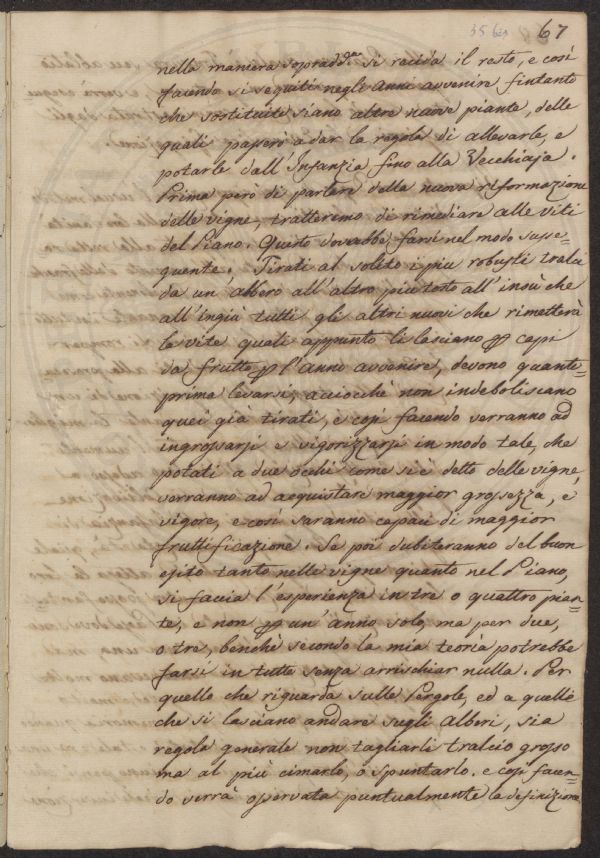 35 bis 67
nella maniera sopradd.a si recida il resto, e così
facendo si seguiti negli anni avvenire fintanto
che sostituite siano altre nuove piante, delle
quali passerò a dar la regola di allevarle, e
potarle dall'Infanzia fino alla Vecchiaja.
Prima però di parlare della nuova riformazione
delle vigne, tratteremo di rimediare alle viti
del Piano. Questo dovrebbe farsi nel modo susse-
quente. Tirati al solito i più robusti tralci
da un'albero all'altro più tosto all'insù che
all'ingiù tutti gli altri nuovi che rimetterà
la vite quali appunto li lasciano p capi
da frutto p l'anno avvenire, devono quanto
prima levarsi, acciochè non indeboliscano
quei già tirati, e così facendo verranno ad
ingrossarsi e vigorizzarsi in modo tale, che
potati a due occhi come si è detto delle vigne
verranno ad acquistare maggior grossezza, e
vigore, e così saranno capaci di maggior
fruttificazione. Se poi dubiteranno del buon
esito tanto nelle vigne quanto nel Piano,
si faccia l'esperienza in tre o quattro pian-
te, e non p un'anno solo, ma per due,
o tre, benchè secondo la mia teoria potrebbe
farsi in tutte senza arrischiar nulla. Per
quello che riguarda sulle Pergole, ed a quelle
che si lasciano andare sugli Alberi, sia
regola generale non tagliarli tralcio grosso
ma al più cimarlo, o spuntarlo. e così facen-
do verrà osservata puntualmente la definizione